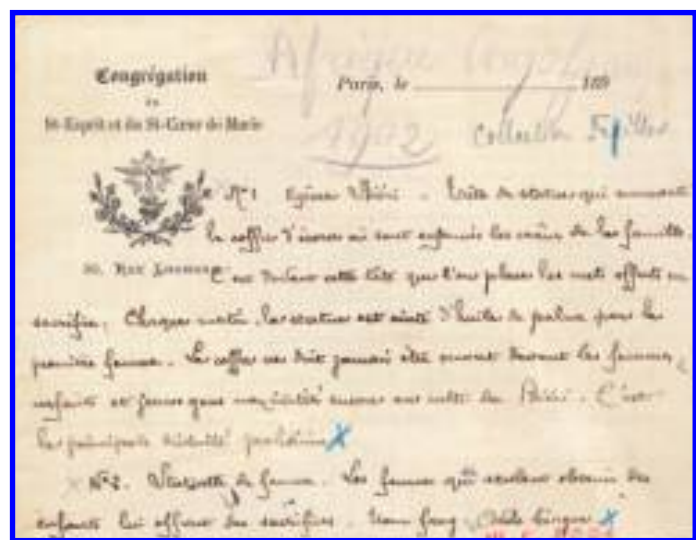 Afrique
Congrégation
du
Paris, le 189
St-Esprit et du St-Cœur de Marie
1902 Collection
N° 1 Byéri. Tête de statue qui surmonte
le coffre d'écorce où sont enfermés les crânes de la famille.
30, Rue Lhomond C'est devant cette tête que l'on place les mets offerts en
sacrifice. Chaque matin la statue est ointe d'huile de palme par la
première femme. Le coffre ne doit jamais être ouvert devant les femmes,
enfants et jeunes gens non initiés encore au culte du Biéri. C'est
la principale divinité
N° 2. Statuette de femme. Les femmes qui veulent obtenir des
enfants lui offrent des sacrifices. Nom fang